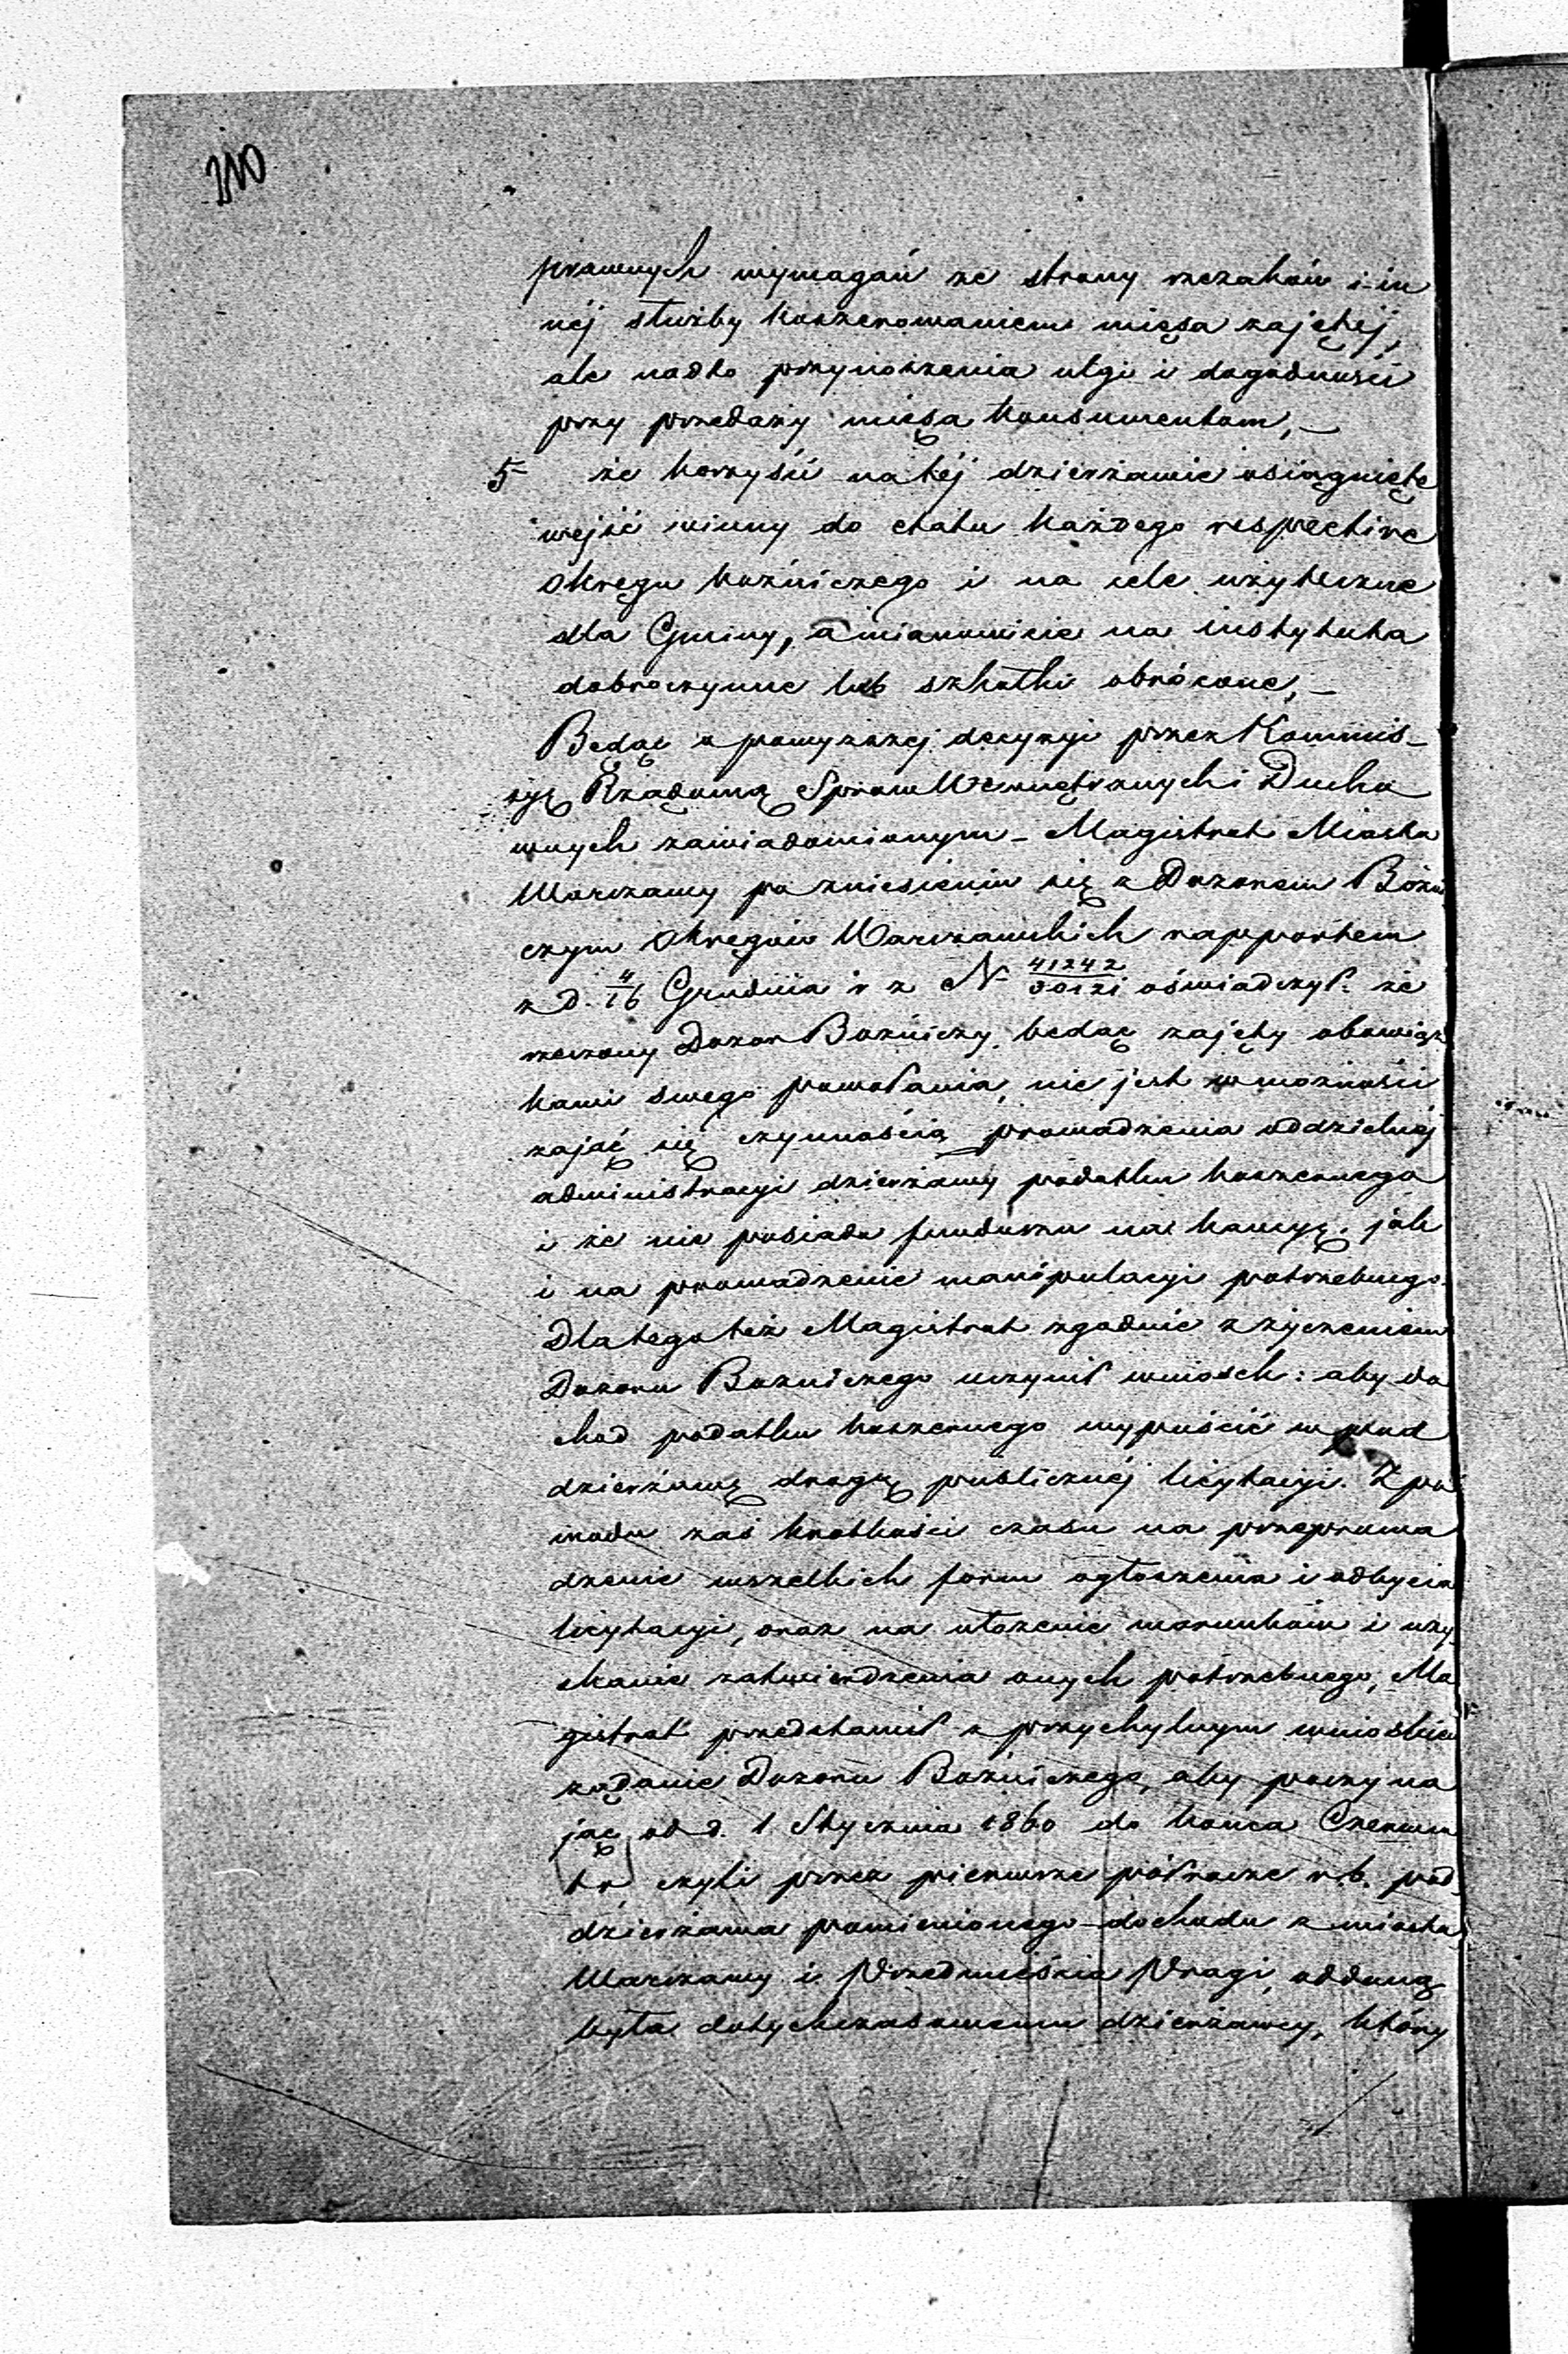 210
prawnych wymagań ze strony rzezaków i in
néj służby koszerowaniem mięsa zajętéj,
ale nadto przynoszenia ulgi i dogodności
przy przedaży mięsa konsumentom, –
5 że korzyści na téj dzierżawie osiągnięte
wejść winny do etatu każdego respective
Okręgu bóżniczego i na cele użyteczne
dla Gminy, a mianowicie na instytuta
dobroczynne lub szkółki obrócone, –
Będąc o powyższej decyzyi przez Kommis–
syę Rządową Spraw Wewnętrznych i Ducho
wnych zawiadomionym – Magistrat Miasta
Warszawy po zniesieniu się z Dozorem Bóżni
czym Okręgów Warszawskich rapportem
z D. 4/16 Grudnia r z N 41242/ oświadczył: że
rzeczony Dozor Bożniczy, będąc zajęty obowiąz
kami swego powołania, nie jest w możności
zająć się czynnością prowadzenia oddzielnéj
administracyi dzierżawy podatku koszernego
i że nie posiada funduszu na kaucyę, jak
i na prowadzenie manipulacyi potrzebnego.
Dlatego też Magistrat zgodnie z życzeniem
Dozoru Bożniczego uczynił wniosek: aby do
chod podatku koszernego wypuścić w pod
dzierżawę drogą publicznéj licytacyi. Z po
wodu zaś krótkości czasu na przeprowa
dzenie wszelkich form ogłoszenia i odbycia
licytacyi, oraz na ułożenie warunków i uzy
skanie zatwierdzenia onych potrzebnego, Ma
gistrat przedstawił z przychylnym wnioskiem
żądanie Dozoru Bożniczego, aby poczyna
jąc od d. 1 Stycznia 1860 do końca Czerwca
t r, czyli przez pierwsze półrocze r. b. pod
dzierżawa pomienionego dochodu z miasta
Warszawy i Przedmieścia Pragi, oddaną
była dotychczasowemu dzierżawcy, który